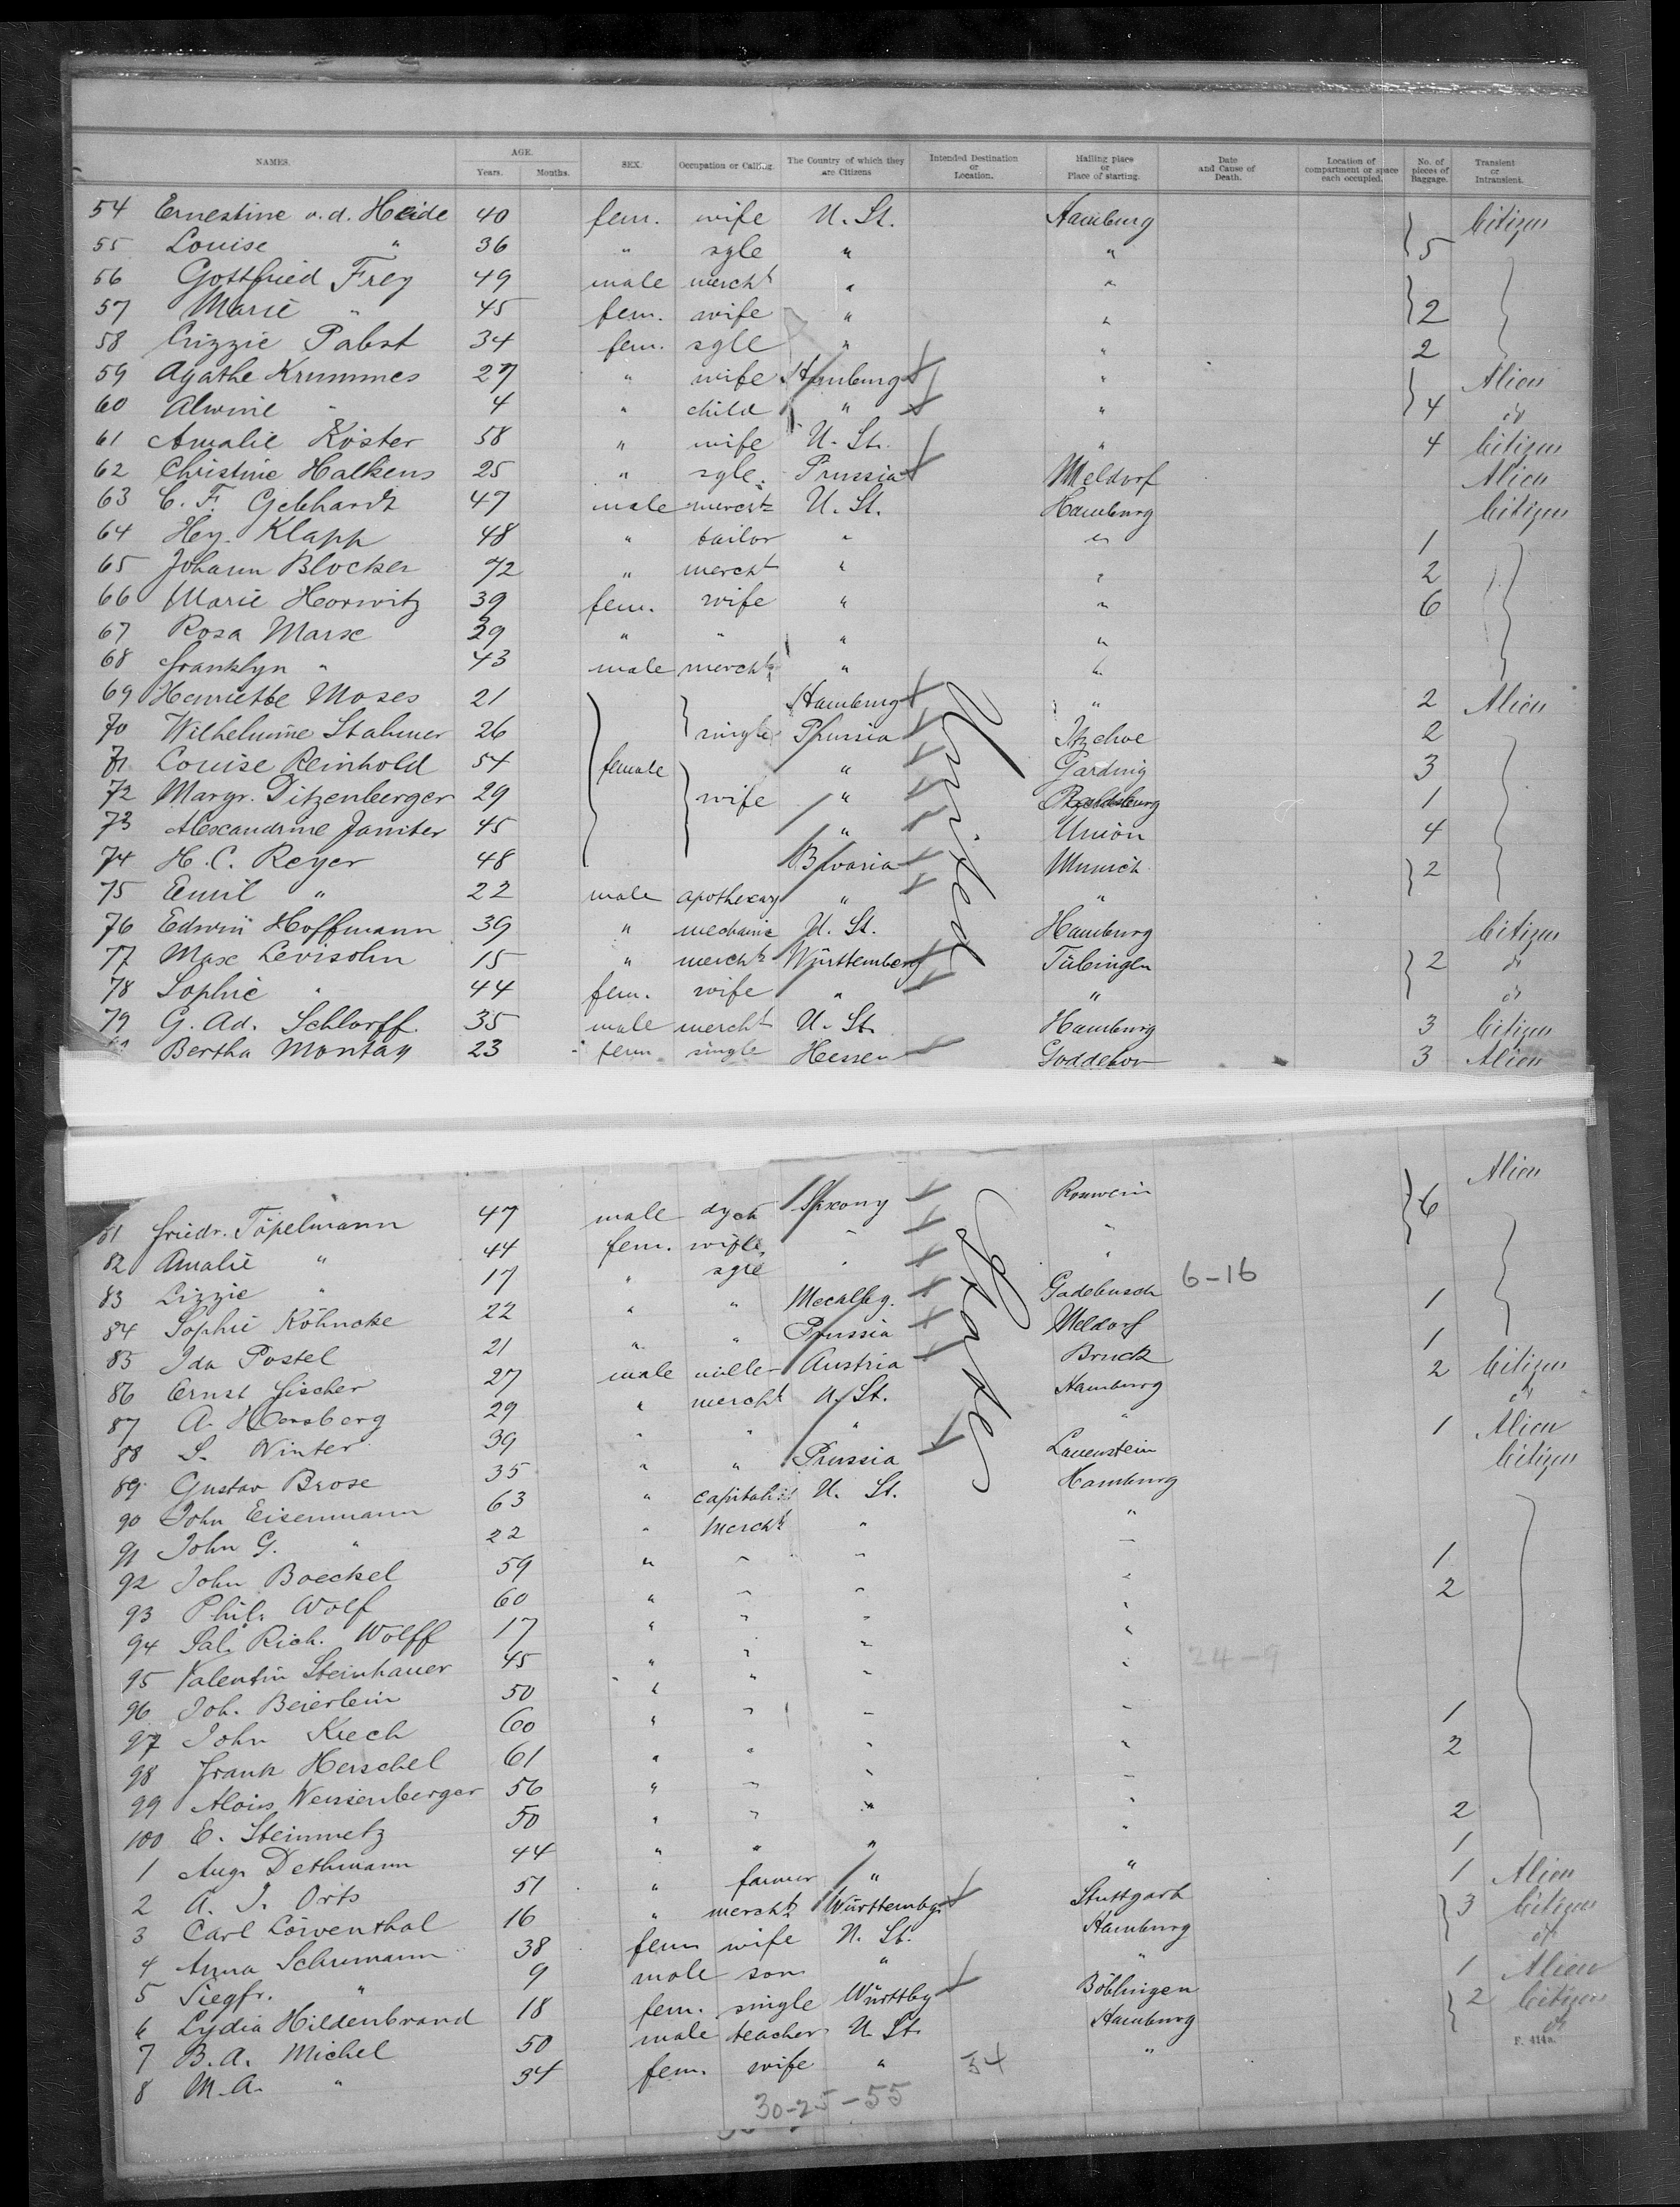 NAMES. AGE. Years. Months. SEX. Occupation or Calling. The Country of which they are Citizens Intended Destination or Location. Hailing place or Place of starting. Date and Cause of Death. Location of compartment or space each occupied. No. of pieces of Baggage. Transient or Intransient.
54 Ernestine v. d. Heide 40 fem. wife U. St. Hamburg Citizen
55 Louise " 36 " sgle " " 5
56 Gottfried Frey 49 male mercht " "
57 Marie " 45 fem. wife " " 2
58 Lizzie Pabst 34 fem. sgle " " 2
59 Agathe Krummes 27 " wife Hamburg " Alien
60 Alwine " 4 " child " " 4 do
61 Amalie Köster 58 " wife U. St. " 4 Citizen
62 Christine Halkens 25 " sgle. Prussia Meldorf Alien
63 C. F. Gebhardt 47 male mercht U. St. Hamburg Citizen
64 Hy. Klapp 48 " tailor " " 1
65 Johann Blocker 72 " mercht " " 2
66 Marie Horwitz 39 fem. wife " " 6
67 Rosa Marx 29 " " " "
68 Franklyn " 43 male mercht " "
69 Henriette Moses 21 Hamburg " 2 Alien
70 Wilhelmine Stahmer 26 single Prussia Itzehoe 2
71 Louise Reinhold 54 female " Garding 3
72 Margr. Ditzenberger 29 wife " 1
73 Alexandrine Janiter 45 " Union 4
74 H. C. Reyer 48 Bavaria Munich 2
75 Emil " 22 male apothecary " "
76 Edwin Hoffmann 39 " mechanic U. St. Hamburg Citizen
77 Max Levisohn 15 " mercht Württemberg Tübingen 2 do
78 Sophie " 44 fem. wife " " do
79 G. Ad. Schlorff. 35 male mercht U. St. Hamburg 3 Citizen
Bertha Montag 23 fem single Hessen Goddelow 3 Alien
United States
81 Friedr. Töpelmann 47 male Saxony Rosswein 6 Alien
82 Amalie " 44 fem. wife " "
83 Lizzie " 17 " sgle " " 6-16
84 Sophie Köhncke 22 " " Mecklbg. Gadebusch 1
85 Ida Postel 21 " " Prussia Meldorf 1
86 Ernst Fischer 27 male miller Austria Bruck 2 Citizen
87 A. Hersberg 29 " mercht U. St. Hamburg do
88 S. Winter 39 " " " " 1 Alien
89 Gustav Brose 35 " " Prussia Lauenstein Citizen
90 John Eisenmann 63 " capitalist U. St. Hamburg
91 John G. " 22 " Mercht " "
92 John Boeckel 59 " " " " 1
93 Phil. Wolf 60 " " " " 2
94 Sal. Rich. Wolff 17 " " " "
95 Valentin Steinhauer 45 " " " " 24-9
96 Joh. Beierlein 50 " " " "
97 John Kiech 60 " " " " 1
98 Frank Herschel 61 " " " " 2
99 Alois Weissenberger 56 " " " "
100 E. Steinmetz 50 " " " " 2
1 Aug. Dethmann 44 " " " " 1
2 A. J. Orts 51 " farmer " " 1 Alien
3 Carl Löwenthal 16 " mercht Württembg. Stuttgart 3 Citizen
4 Anna Schumann 38 fem wife U. St. Hamburg do
5 Siegfr. " 9 male son " " 1 Alien
6 Lydia Hildenbrand 18 fem. single Württbg Böblingen 2 Citizen
7 B. A. Michel 50 male teacher U. St. Hamburg do
8 M. A. " 34 fem. wife " 34 "
F. 414a.
30-25-55